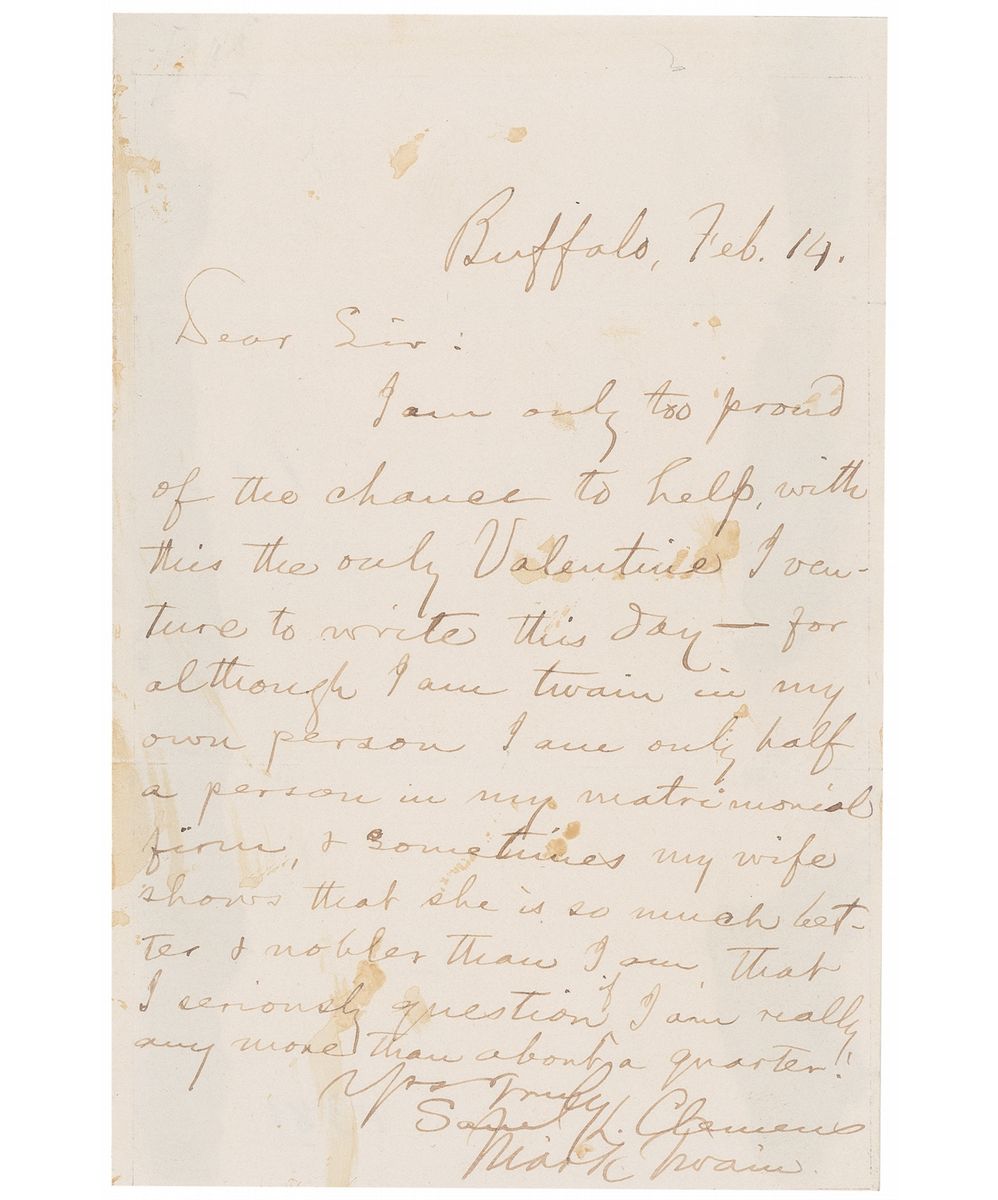 Buffalo, Feb. 14.
Dear Sir:
I am only too proud
of the chance to help, with
this the only Valentine I ven-
ture to write this day — for
although I am twain in my
own person I am only half
a person in my matrimonial
firm, & sometimes my wife
shows that she is so much bet-
ter & nobler than I am, that
I seriously question if I am really
any more than about a quarter!
Yrs Truly
Saml L. Clemens
Mark Twain.